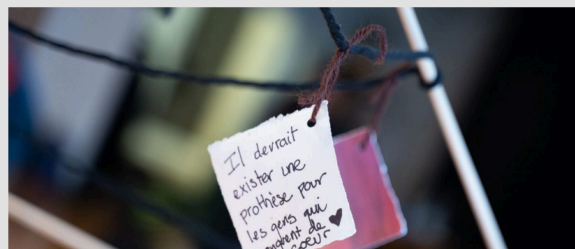 Il devrait
exister une
prothèse pour
les gens qui
de
coeur